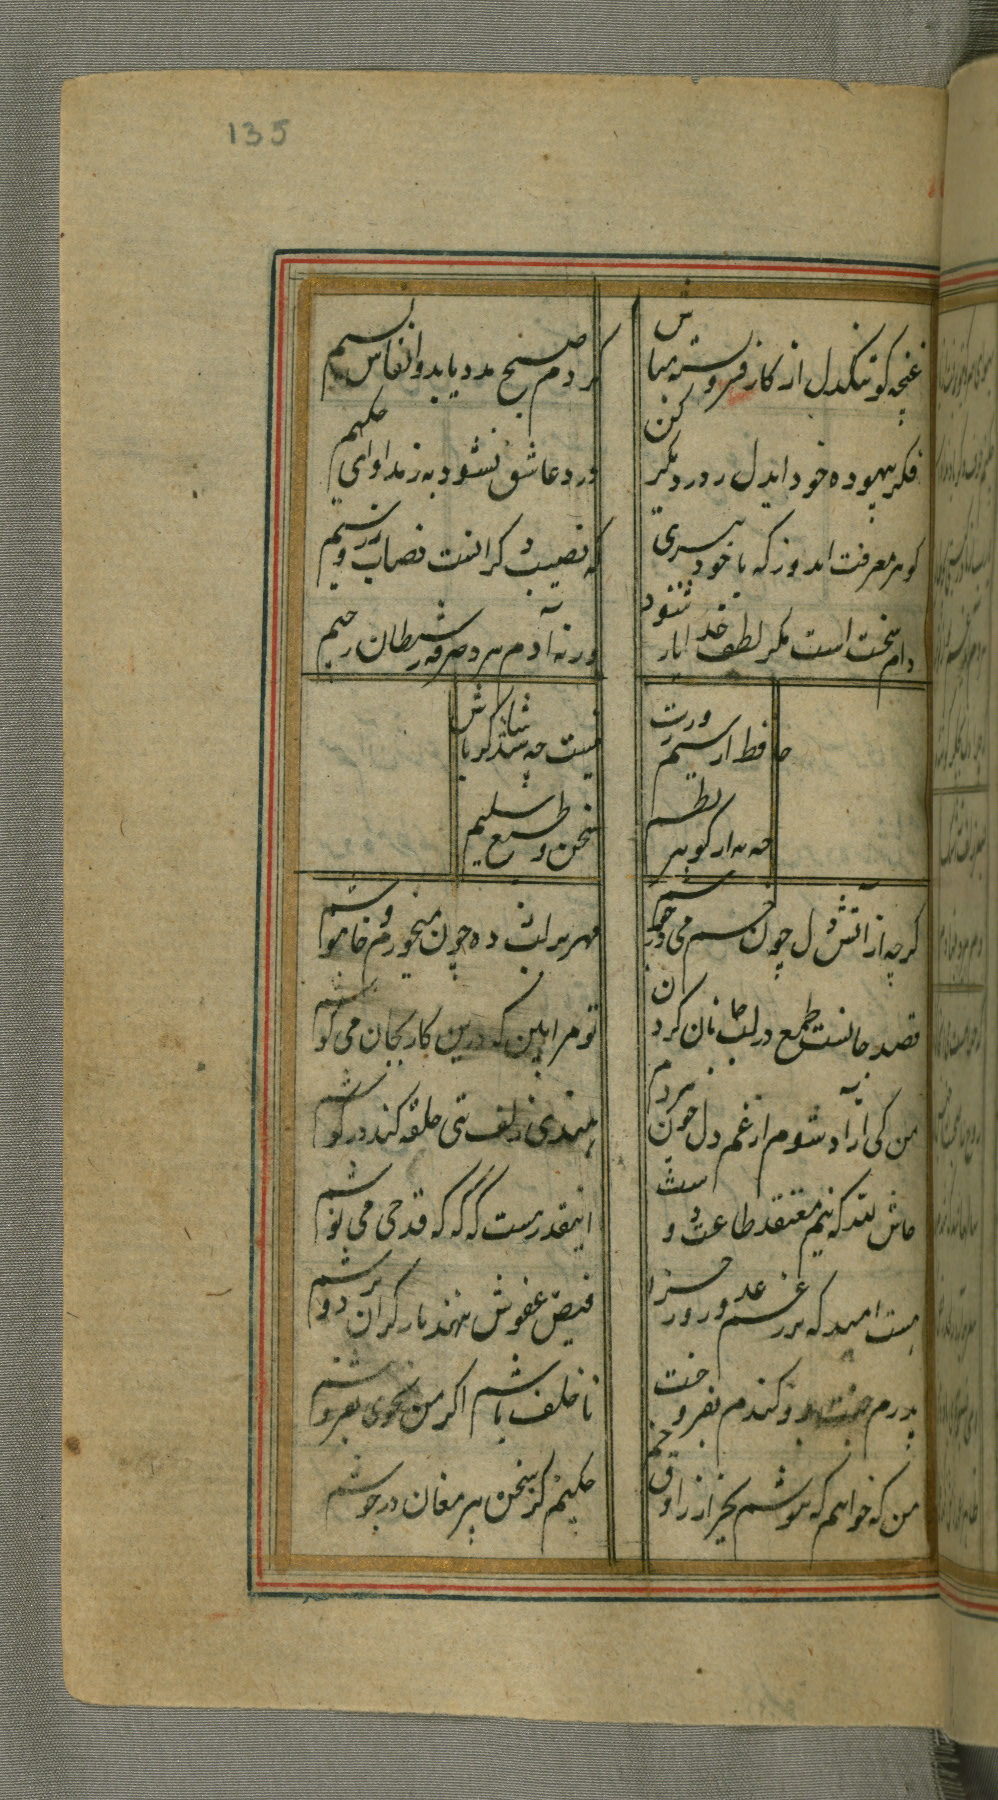 135
غنچه کو تنکدل از کار فروبسته مباش
کز دم صبح مدد یابد و انفاس نسیم
فکر بهبود خود ایدل ز در دیکر کن
درد عاشق نشود به ز مداوای حکیم
کوهر معرفت اندوز که با خود ببری
که نصیب دکرانست نصاب زر و سیم
دام سختست مکر لطف خدا یار شود
ورنه آدم نبرد صرفه ز شیطان رجیم
حافظ ار سیم و زرت
نیست چه شد شاکر باش
چه به از کوهر نظم
سخن و طبع سلیم
کرچه از آتش دل چون خم می در جوشم
مهر بر لب زده خون میخورم و خاموشم
قصد جانست طمع در لب جانان کردن
تو مرا بین که درین کار بجان می کوشم
من کی آزاد شوم از غم دل چون هر دم
هندوی زلف بتی حلقه کند در کوشم
حاش لله که نیم معتقد طاعت و
اینقدر هست که که که قدحی می نوشم
هست امید که بر رغم عدو روز جزا
فیض عفوش ننهد بار کران بر دوشم
پدرم جنت بدو کندم بفروخت
ناخلف باشم اکر من بجوی نفروشم
من که خواهم که ننوشم بجز از راوق خم
چکنم کر سخن پیر مغان در جوشم